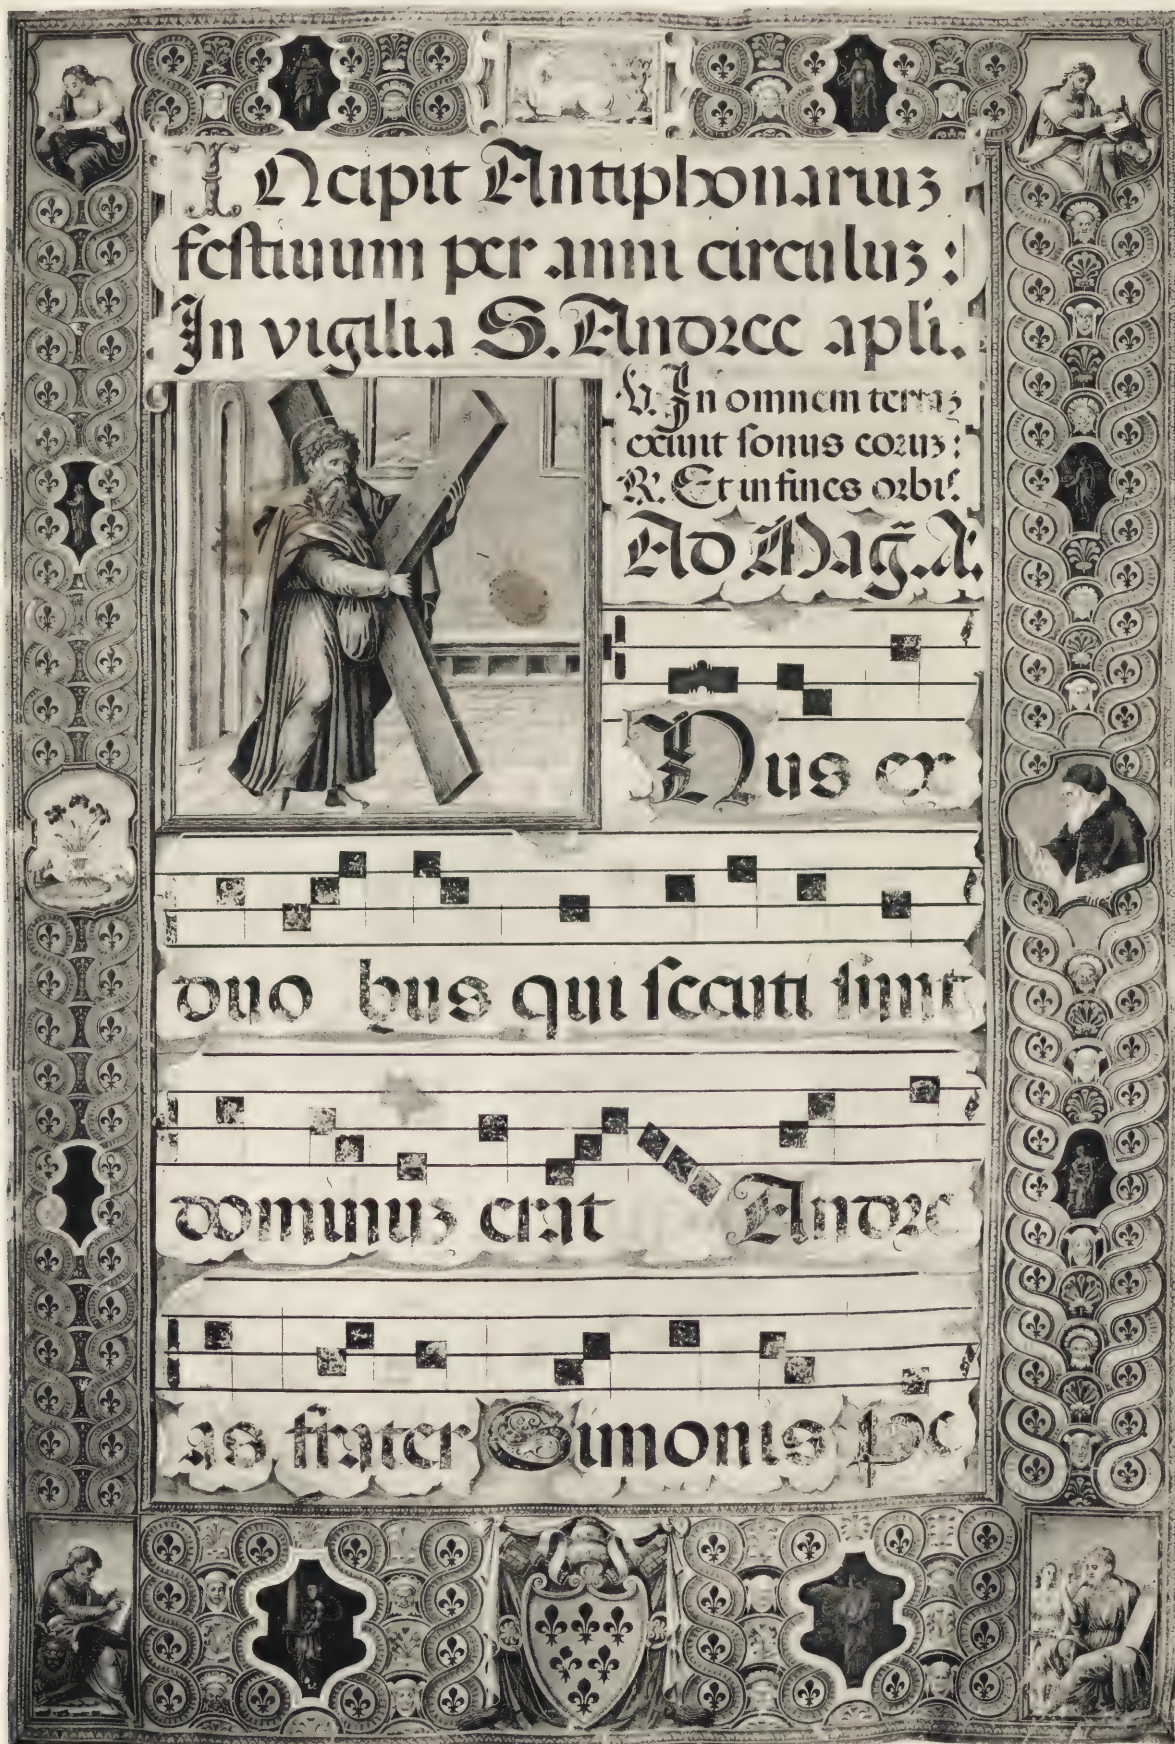 INcipit Antiphonariuʒ
festiuum per anni circuluʒ :
In vigilia S. Andree apli.
V. In omnem terraʒ
exiuit sonus eoruʒ :
R. Et in fines orbis.
Ad Mag̃. A.
Unus ex
duo bus qui secuti sunt
dominuʒ erat Andre
as frater Simonis pe